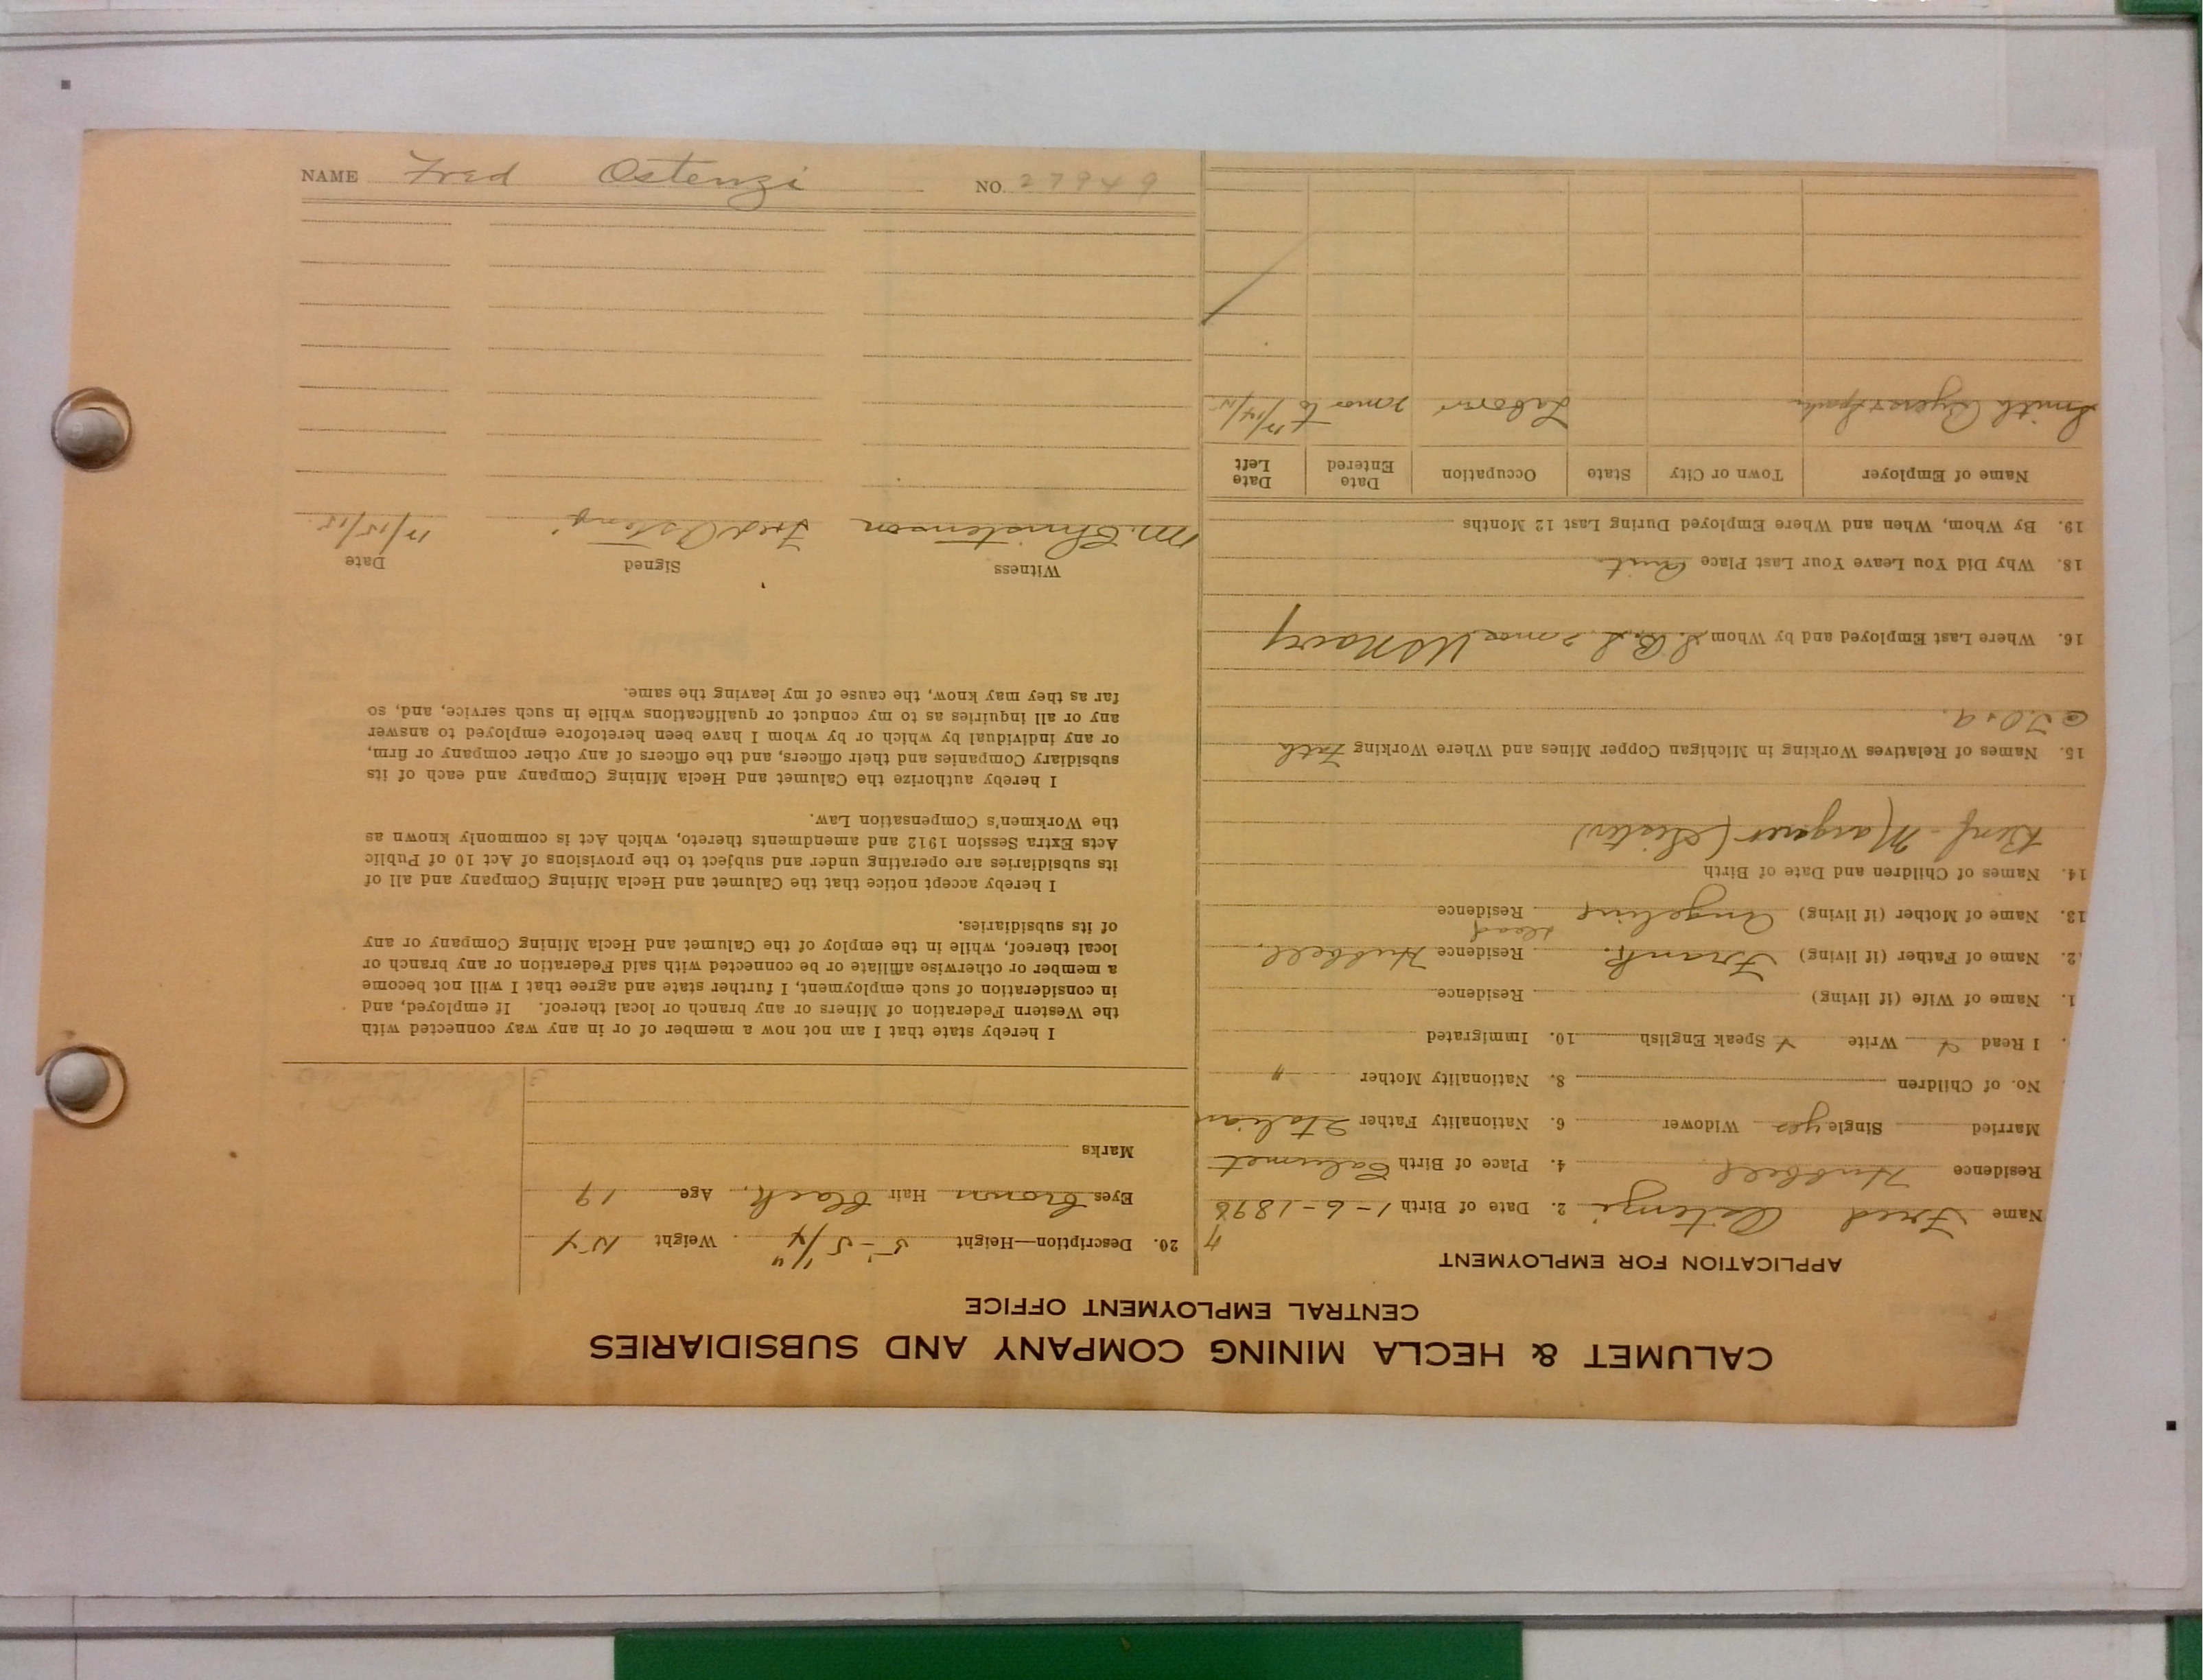 CALUMET & HECLA MINING COMPANY AND SUBSIDIARIES
CENTRAL EMPLOYMENT OFFICE
APPLICATION FOR EMPLOYMENT
Name Fred Ostenzi 2. Date of Birth 1-6-1898
Residence Hubbell 4. Place of Birth Calumet
Married Single yes Widower 6. Nationality Father Italian
No. of Children 8. Nationality Mother "
I Read Y Write Y Speak English 10. Immigrated
1. Name of Wife (if living) Residence
2. Name of Father (if living) Frank. Residence Hubbell.
13. Name of Mother (if living) Angeline dead Residence
14. Names of Children and Date of Birth
Benf- Margaret (Sister)
15. Names of Relatives Working in Michigan Copper Mines and Where Working Fath
16. Where Last Employed and by Whom 2 mos US Navy
18. Why Did You Leave Your Last Place Quit
19. By Whom, When and Where Employed During Last 12 Months
Name of Employer Town or City State Occupation Date Entered Date Left
Smith Byers & Laborer 2 mos to
20. Description—Height 5-5 1/4" Weight
Eyes brown Hair black. Age 19
Marks
I hereby state that I am not now a member of or in any way connected with
the Western Federation of Miners or any branch or local thereof. If employed, and
in consideration of such employment, I further state and agree that I will not become
a member or otherwise affiliate or be connected with said Federation or any branch or
local thereof, while in the employ of the Calumet and Hecla Mining Company or any
of its subsidiaries.
I hereby accept notice that the Calumet and Hecla Mining Company and all of
its subsidiaries are operating under and subject to the provisions of Act 10 of Public
Acts Extra Session 1912 and amendments thereto, which Act is commonly known as
the Workmen's Compensation Law.
I hereby authorize the Calumet and Hecla Mining Company and each of its
subsidiary Companies and their officers, and the officers of any other company or firm,
or any individual by which or by whom I have been heretofore employed to answer
any or all inquiries as to my conduct or qualifications while in such service, and, so
far as they may know, the cause of my leaving the same.
Witness Signed Date
M. Christenson Fred Ostenzi
NAME Fred Ostenzi NO. 27949